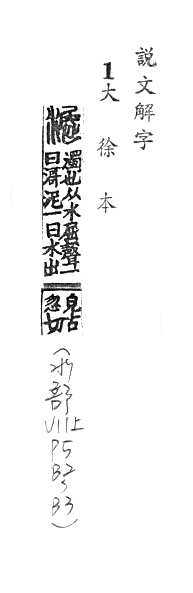 説文解字
1大徐本
淈
濁也从水屈聲一
曰滒泥一曰水出
皃古
忽切
(水部VIII上P5B2~B3)